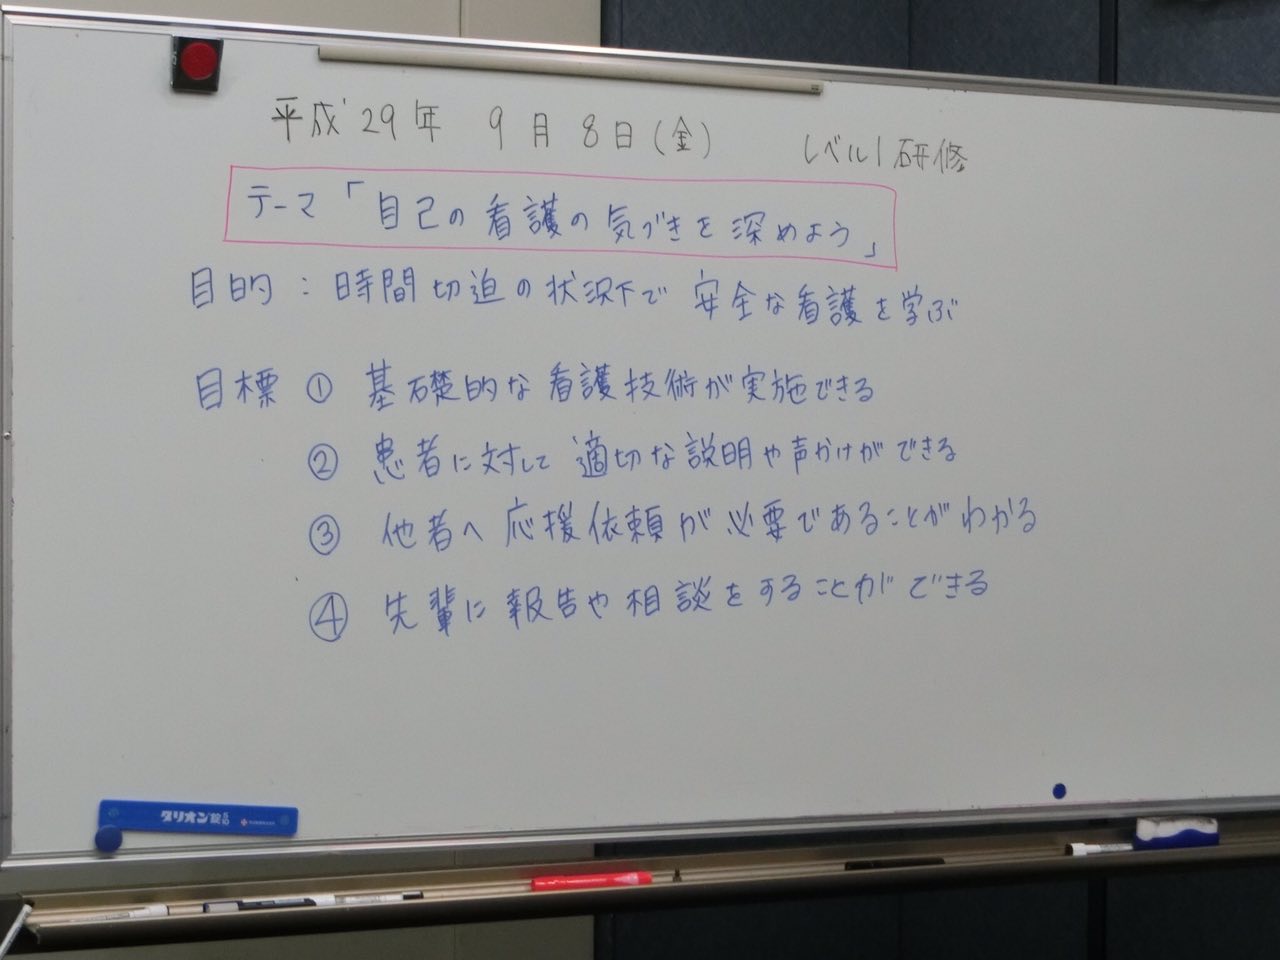 平成29年 9月 8日(金) レベル1研修
テーマ「自己の看護の気づきを深めよう」
目的:時間切迫の状況下で 安全な看護を学ぶ
目標 ① 基礎的な看護技術が実施できる
② 患者に対して 適切な説明や声かけができる
③ 他者へ応援依頼が必要であることがわかる
④ 先輩に報告や相談をすることができる
タリオン錠 5 10